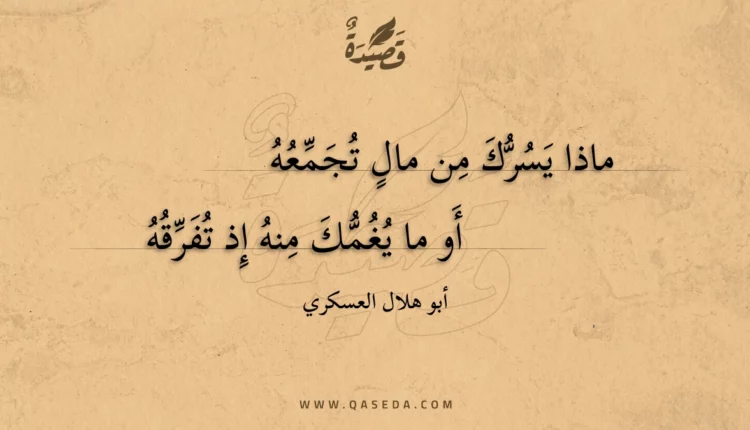 قَصِيدَةٌ
ماذا يَسُرُّكَ مِن مالٍ تُجَمِّعُهُ
أَو ما يُغُمُّكَ مِنهُ إِذ تُفَرِّقُهُ
أبو هلال العسكري
WWW.QASEDA.COM